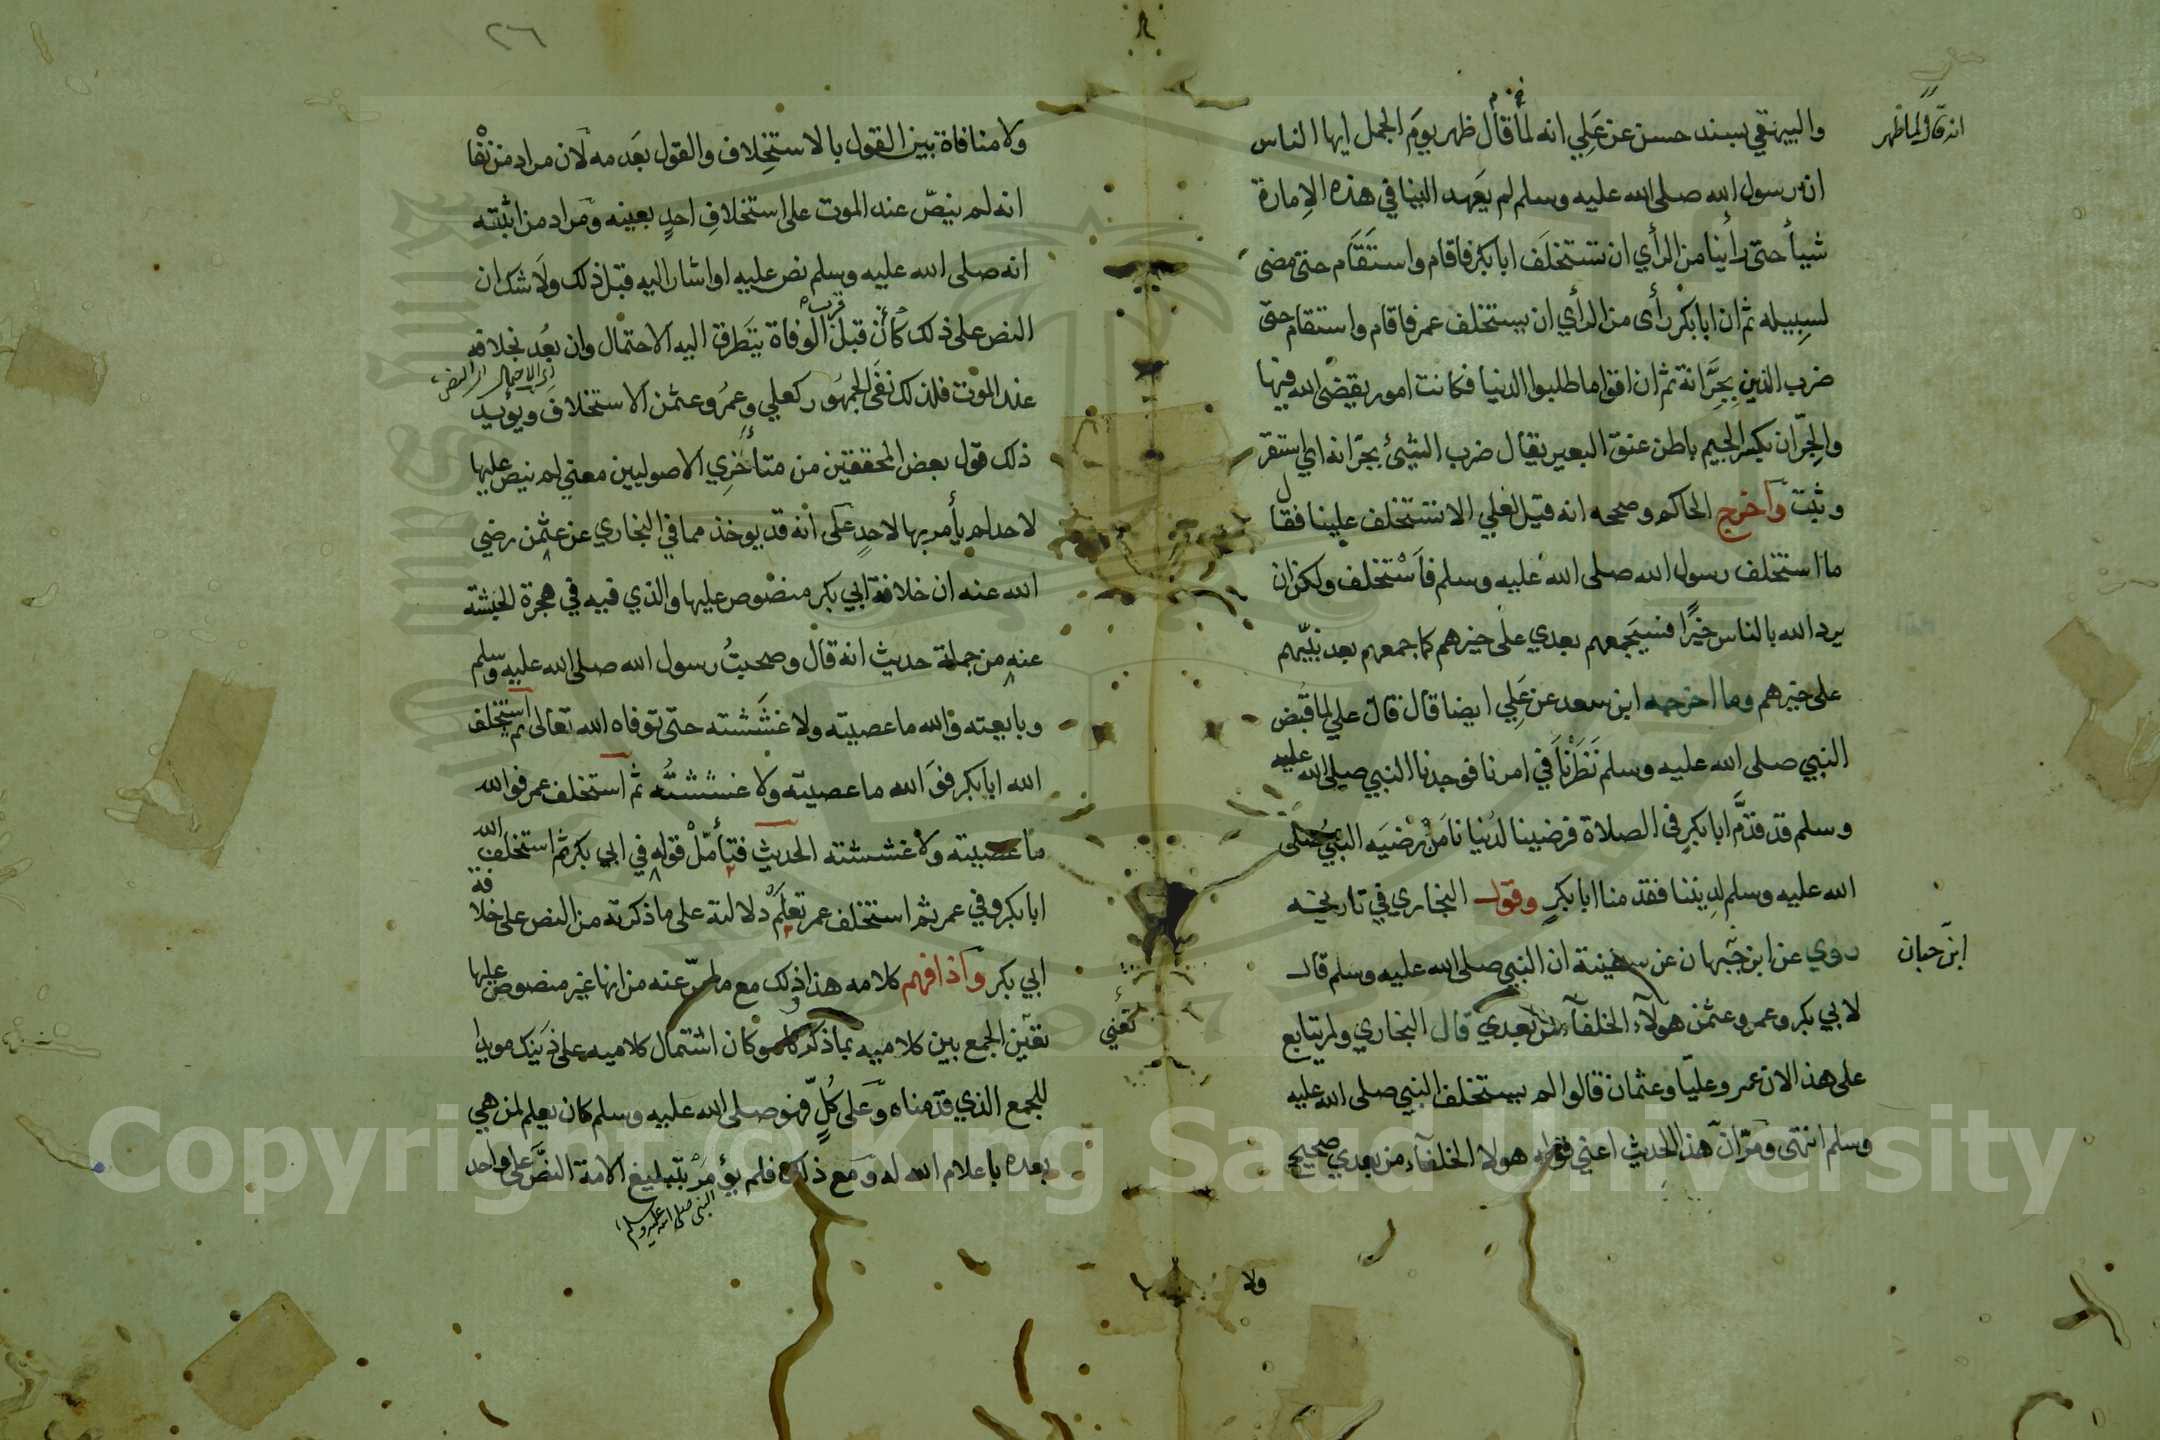 والبيهقي بسند حسن عن علي انه لما قال ظهر يوم الجمل ايها الناس
انه قال لما ظهر
ان رسول الله صلى الله عليه وسلم لم يعهد الينا في هذه الامارة
شيأ حتى رأينا من الرأي ان نستخلف ابا بكر فاقام واستقام حتى مضى
لسبيله ثم ان ابا بكر رأى من الرأي ان يستخلف عمر فاقام واستقام حتى
ضرب الدين بجرانة ثم ان اقواما طلبوا الدنيا فكانت امور يقضى الله فيها
والجران بكسر الجيم باطن عنق البعير يقال ضرب الشيئ بجرانه اي استقر
وثبت واخرج الحاكم وصححه انه قيل لعلي الا تستخلف علينا فقال
ما استخلف رسول الله صلى الله عليه وسلم فاستخلف ولكن ان
يرد الله بالناس خيرًا فسيجمعهم بعدي على خيرهم كما جمعهم بعد نبيهم
على خيرهم وما اخرجه ابن سعد عن علي ايضا قال قال علي لما قبض
النبي صلى الله عليه وسلم نظرنا في امرنا فوجدنا النبي صلى الله عليه
وسلم قد قدّم ابا بكر في الصلاة فرضينا لدنيانا من رضيه النبي صلى
الله عليه وسلم لديننا فقدمنا ابا بكر وقول البخاري في تاريخه
روي عن ابن جبهان عن سفينة ان النبي صلى الله عليه وسلم قال
ابن حبان
لابي بكر وعمر وعثمن هولآء الخلفآء من بعدي قال البخاري ولم يتابع
على هذا لان عمر وعليا وعثمان قالوا لم يستخلف النبي صلى الله عليه
وسلم انتهى ومرّ ان هذا الحديث اعني قوله هولا الخلفآء من بعدي صحيح
ولا
٢٦
ولا منافاة بين القول بالاستخلاف والقول بعدمه لان مراد من نفا
انه لم ينصّ عند الموت على استخلاف احدٍ بعينه ومراد من اثبته
انه صلى الله عليه وسلم نص عليه او اشار اليه قبل ذلك ولا شك ان
النص على ذلك كأن قبل الوفاة يتطرق اليه الاحتمال وان بعُد بخلافه
قرب
اي الاحتمال
عند الموت فلذلك نفى الجمهور كعلي وعمر وعثمن الاستخلاف ويؤيد
ذلك قول بعض المحققين من متأخري الاصوليين معنى لم ينص عليها
لاحد لم يأمر بها لاحدٍ على انه قد يوخذ مما في البخاري عن عثمن رضي
الله عنه ان خلافة ابي بكر منصوص عليها والذي فيه في هجرة الحبشة
عنه من جملة حديث انه قال وصحبتُ رسول الله صلى الله عليه وسلم
وبايعته والله ما عصيته ولا غششته حتى توفاه الله تعالى ثم استخلف
الله ابا بكر فوالله ما عصيته ولا غششتُه ثم استخلف عمر فوالله
ما عصيته ولا غششته الحديث فتأمّل قوله في ابي بكر ثم استخلف الله
ابا بكر وفي عمر ثم استخلف عمر تعلم دلالته على ما ذكرته من النص على خلافة
ابي بكر واذا فهم كلامه هذا ذلك مع ما مرّ عنه من انها غير منصوص عليها
تعين الجمع بين كلاميه بما ذكر وكان اشتمال كلاميه على ذينك مويدا
تعني
للجمع الذي قدمناه وعلى كلٍّ فهو صلى الله عليه وسلم كان يعلم لمن هي
بعده باعلام الله له ومع ذلك فلم يؤمر بتبليغ الامة النص على واحد
النبي صلى الله عليه وسلم
Copyright © King Saud University